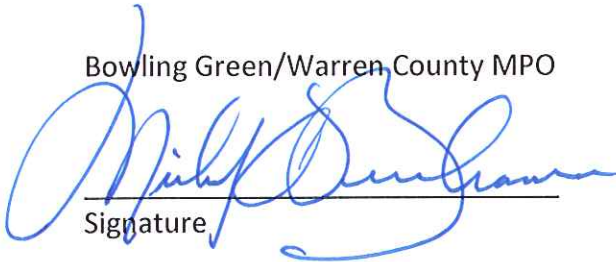 Bowling Green/Warren County MPO
Signature